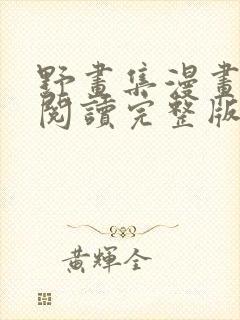 野畫集漫畫
閱讀完整版
黃輝全